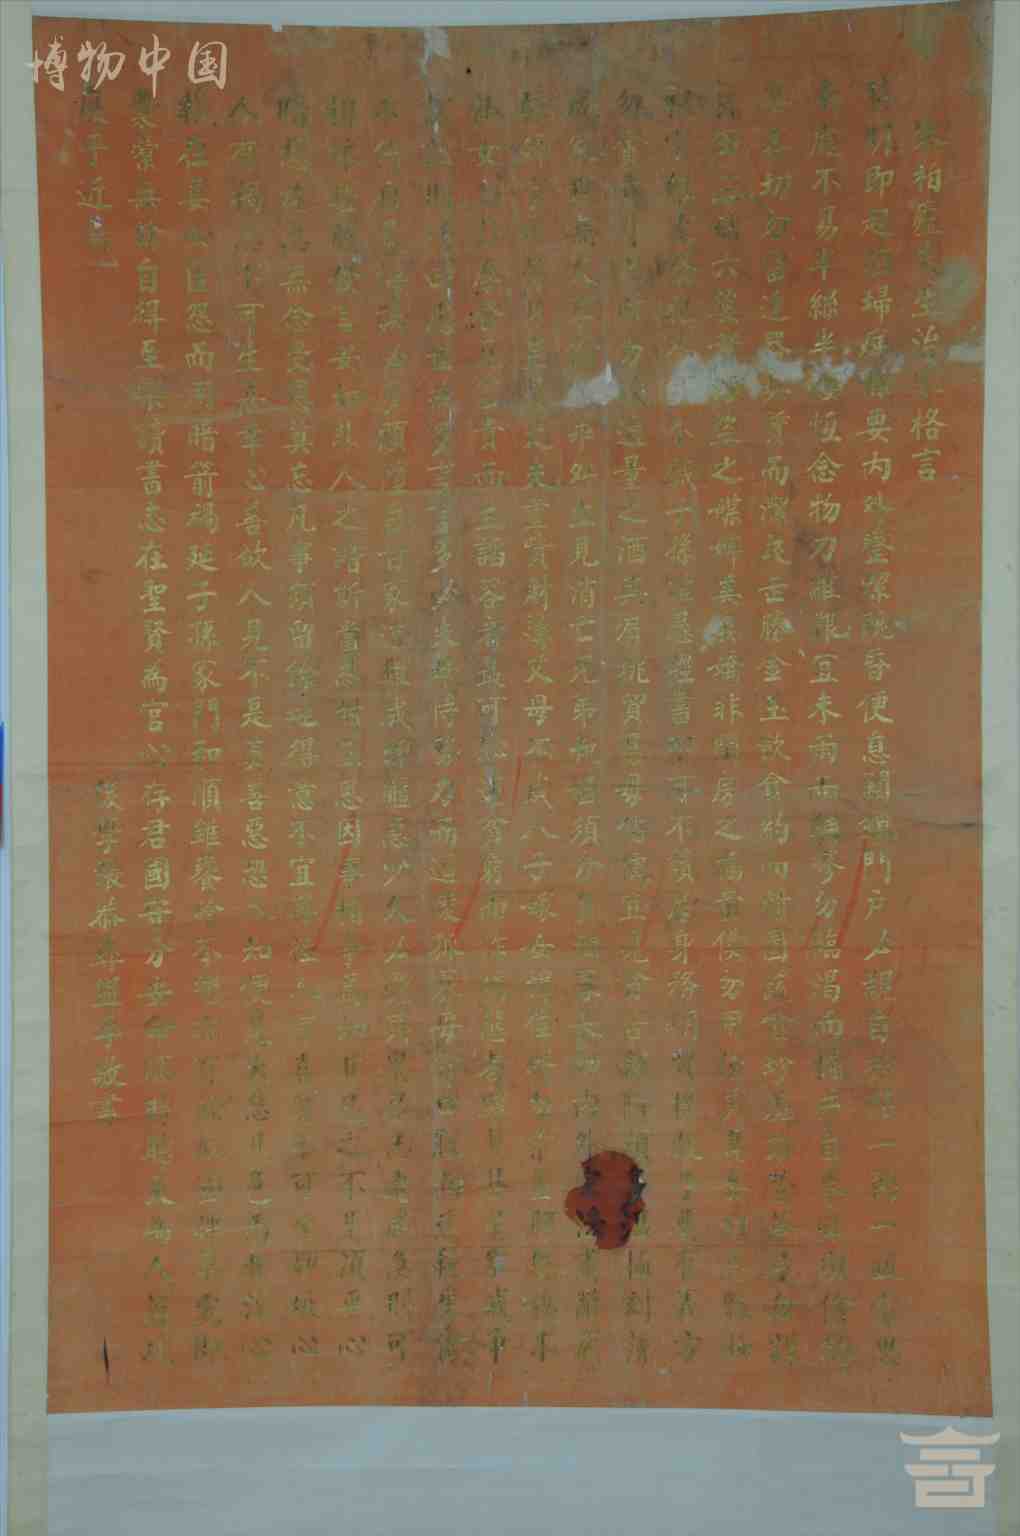 博物中國
朱柏廬先生治家格言
黎明即起洒掃庭除要內外整潔既昏便息關鎖門戶必親自檢點一粥一飯當思
來處不易半絲半縷恆念物力維艱宜未雨而綢繆勿臨渴而掘井自奉必須儉約
宴客切勿留連器具質而潔瓦缶勝金玉飲食約而精園蔬愈珍羞勿營華屋勿謀
良田三姑六婆實淫盜之媒婢美妾嬌非閨房之福童僕勿用俊美妻妾切忌艷粧
祖宗雖遠祭祀不可不誠子孫雖愚經書不可不讀居身務期質樸教子要有義方
勿貪意外之財勿飲過量之酒與肩挑貿易毋佔便宜見貧苦親鄰須加溫恤刻薄
成家理無久享倫常乖舛立見消亡兄弟叔姪須分多潤寡長幼內外宜法肅辭嚴
聽婦言乖骨肉豈是丈夫重貲財薄父母不成人子嫁女擇佳婿毋索重聘娶媳求
淑女勿計厚奩見富貴而生諂容者最可恥遇貧窮而作驕態者賤莫甚居家戒爭
訟訟則終凶處世戒多言言多必失毋恃勢力而凌逼孤寡毋貪口腹而恣殺牲禽
乖僻自是悔悞必多頹惰自甘家道難成狎暱惡少久必受其累屈志老成急則可
相依輕聽發言安知非人之譖訴當忍耐三思因事相爭焉知非己之不是須平心
暗想施惠無念受恩莫忘凡事當留餘地得意不宜再往人有喜慶不可生妒忌心
人有禍患不可生喜幸心善欲人見不是真善惡恐人知便是大惡見色而起淫心
報在妻女匿怨而用暗箭禍延子孫家門和順雖饔飧不繼亦有餘歡國課早完即
囊橐無餘自得至樂讀書志在聖賢為官心存君國守分安命順時聽天為人若此
庶乎近焉
後學張恭盥手敬書